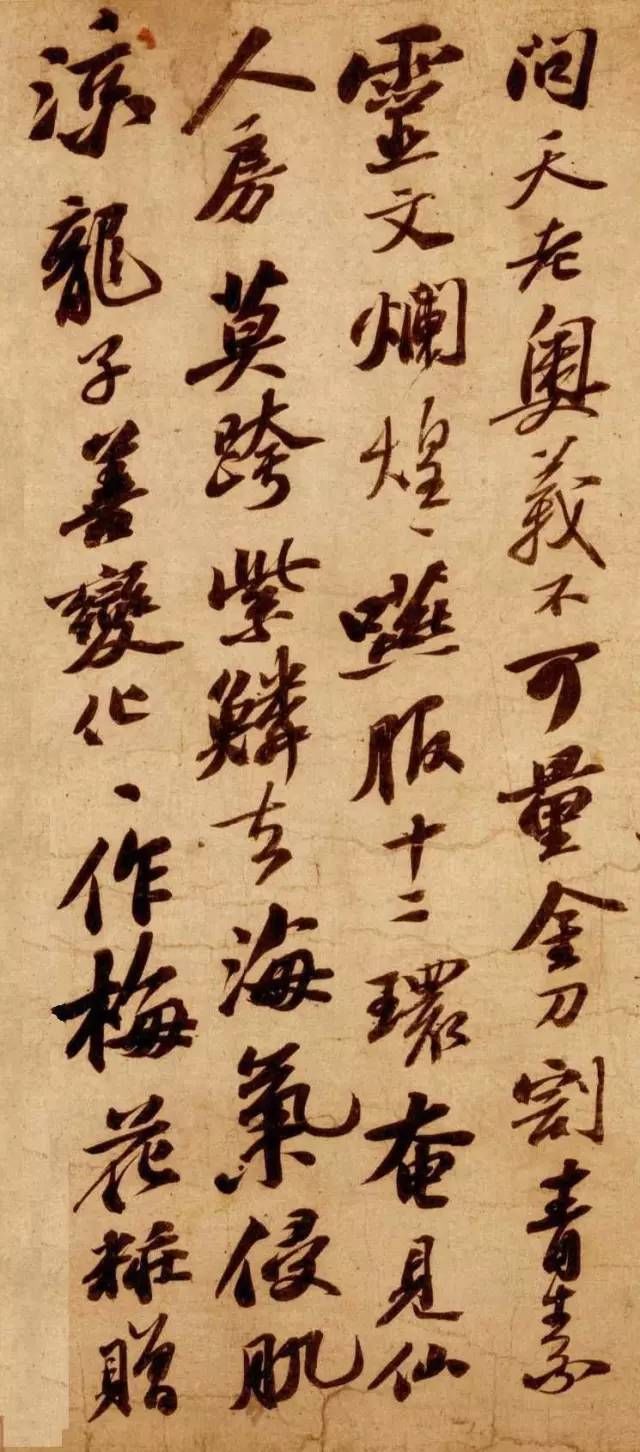 問天老奧義不可量金刀割青素
靈文爛煌煌嚥服十二環奄見仙
人房莫跨紫鱗去海氣侵肌
涼龍子善變化化作梅花粧贈